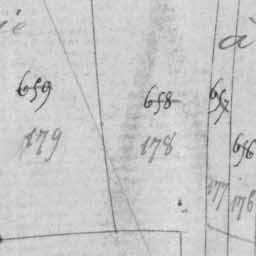 à
659
658
657
656
179
178
177
176